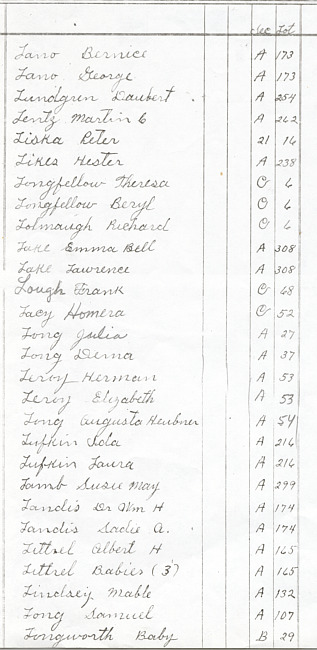 Sec Lot
Lano Bernice A 173
Lano George A 173
Lundgren Daubert A 254
Lentz Martin C A 262
Liska Peter 21 16
Likes Hester A 238
Longfellow Theresa O 6
Longfellow Beryl O 6
Lolmaugh Richard O 6
Lake Emma Bell A 308
Lake Lawrence A 308
Lough Frank O 68
Lacy Homera O 52
Long Julia A 27
Long Dema A 37
Leroy Herman A 53
Leroy Elizabeth A 53
Long Augusta Heubner A 54
Lufkin Iola A 216
Lufkin Laura A 216
Lamb Susie May A 299
Landis Dr Wm H A 174
Landis Sadie A. A 174
Littrel Albert H A 165
Littrel Babies (3) A 165
Lindsey Mable A 132
Long Samuel A 107
Longworth Baby B 29